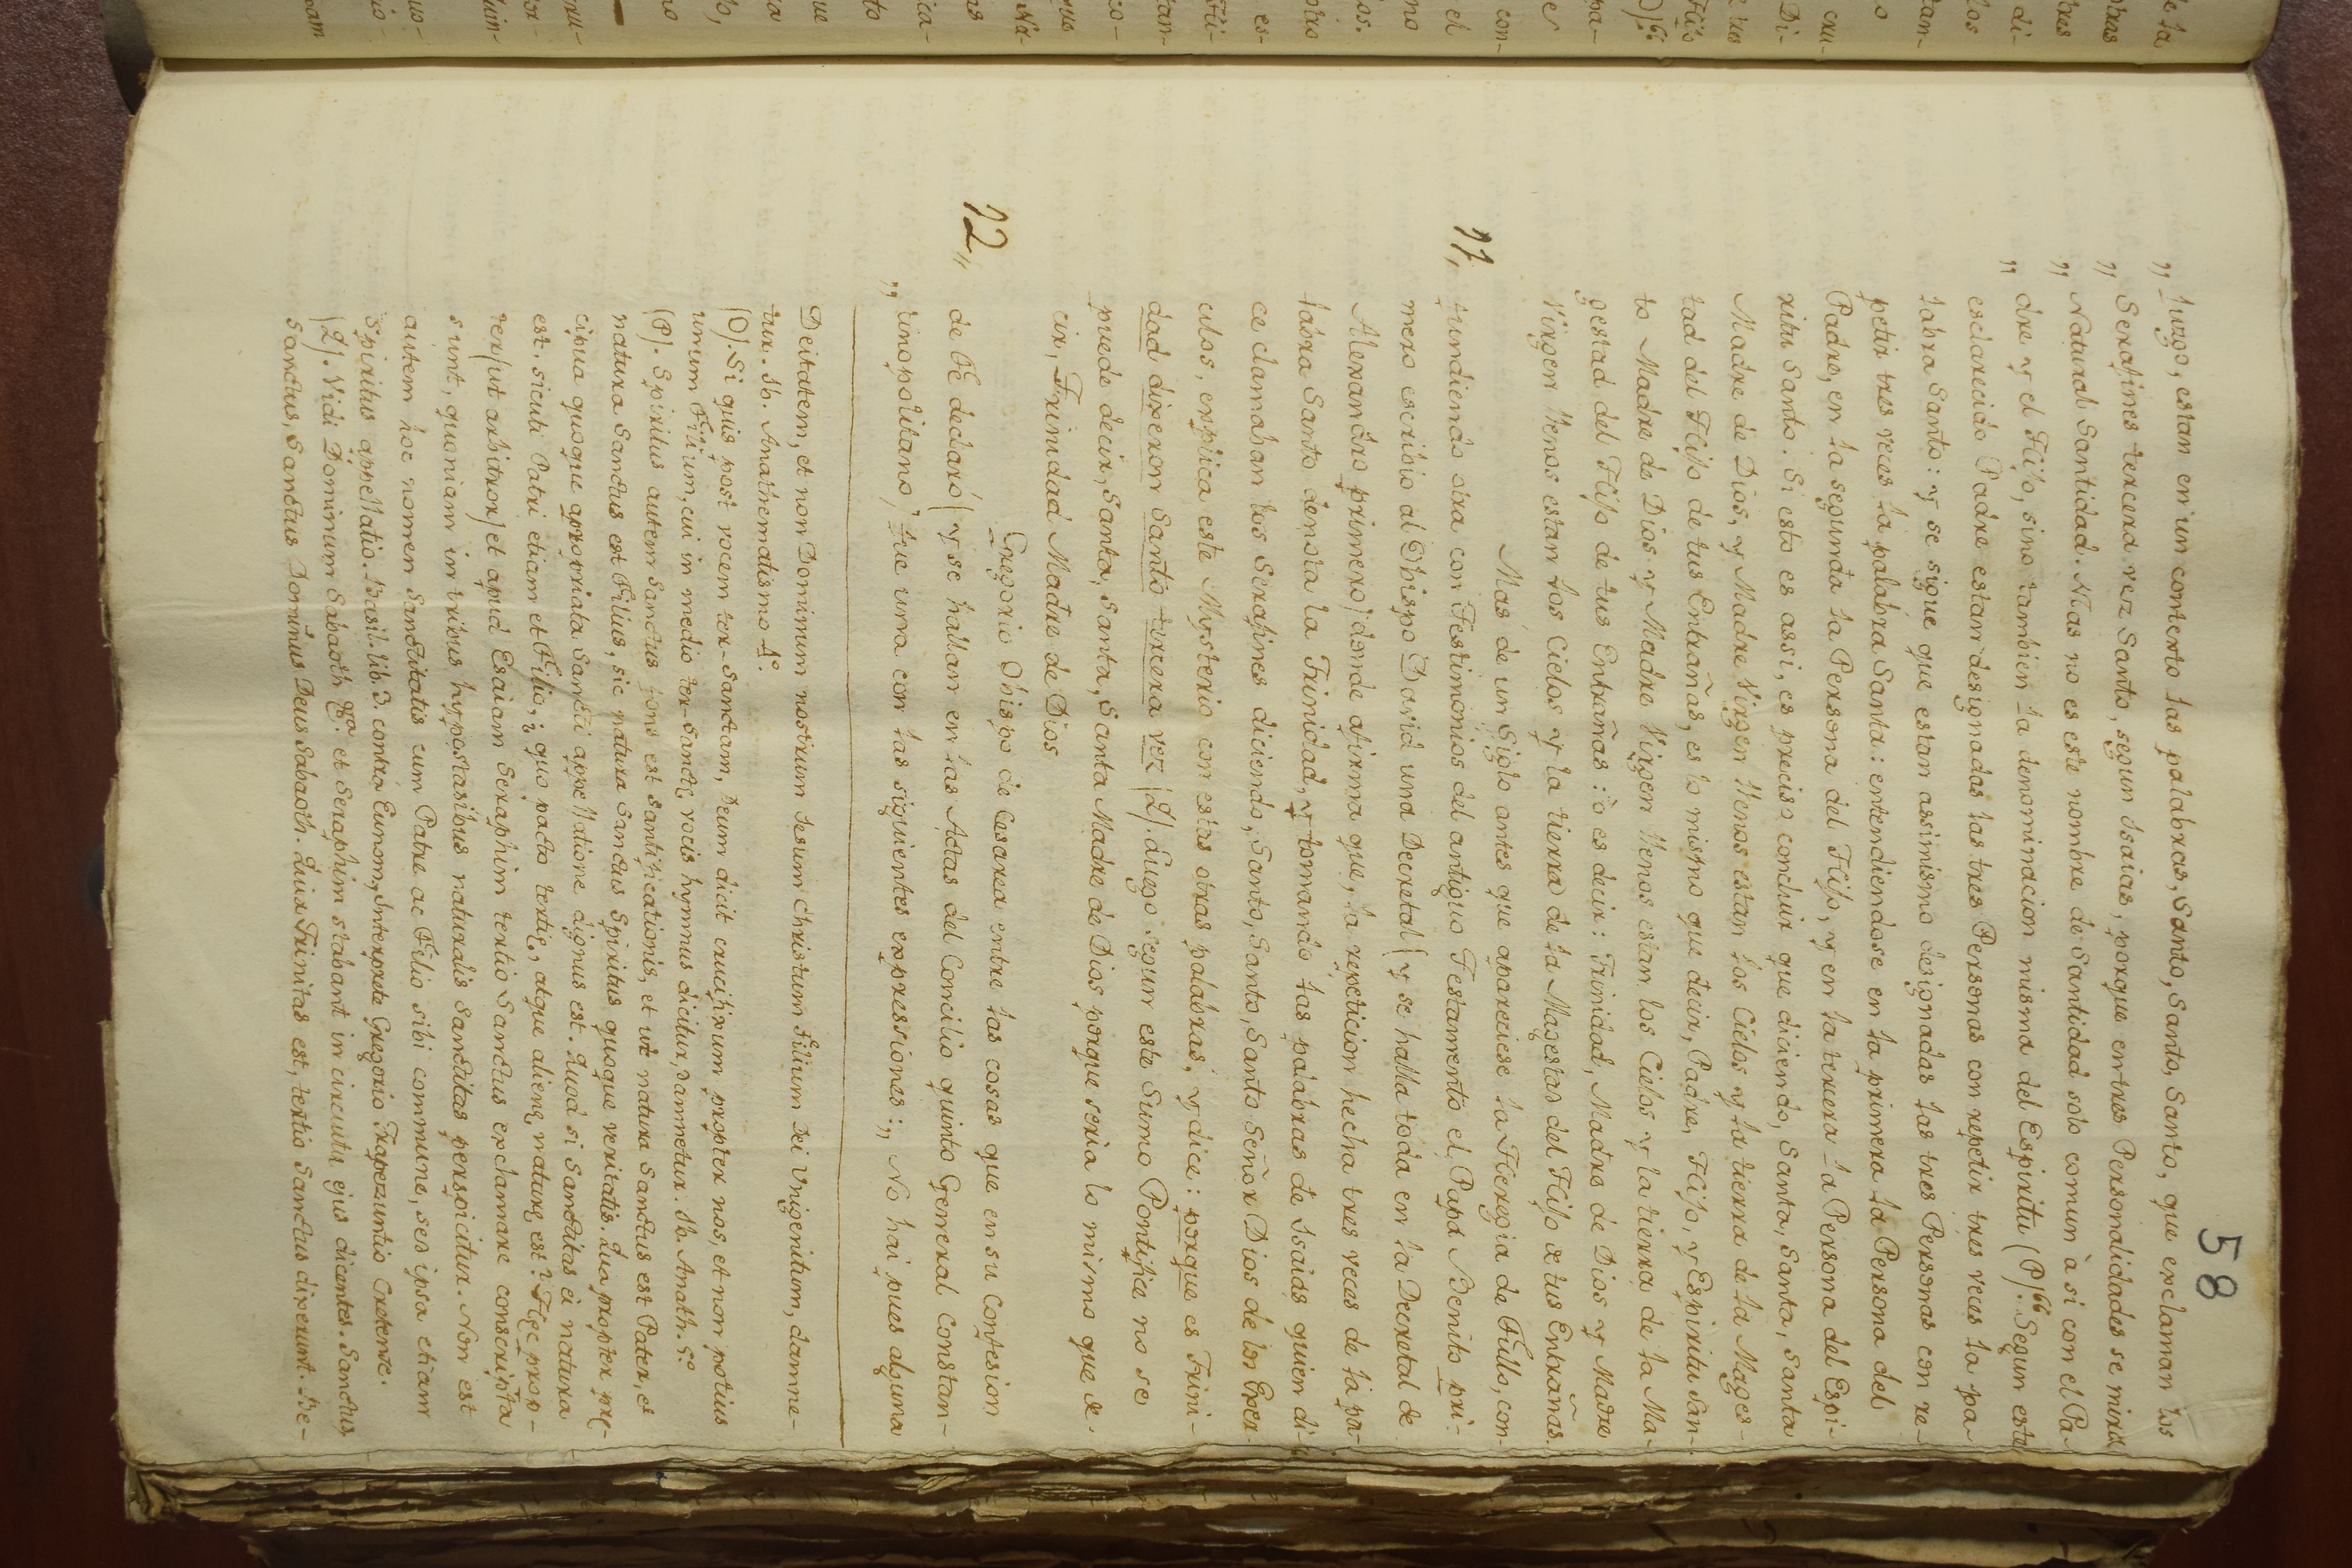 58
„ jurgo, estan en un contexto las palabras, Santo, Santo, Santo, que exclaman los
„ Serafines tercera vez Santo, segun Isaias, porque en tres Personalidades se mira
„ Natural Santidad. Mas no es este nombre de Santidad solo comun à si con el Pa-
„ dre y el Hijo, sino tambien la denominacion misma del Espiritu (P). Segun este
esclarecido Padre estan designadas las tres Personas con repetir tres veces la pa-
labra Santo: y se sigue que estan assimismo designadas las tres Personas con re-
petir tres veces la palabra Santa: entendiendose en la primera la Persona del
Padre, en la segunda la Persona del Hijo, y en la tercera la Persona del Espi-
ritu Santo. Si esto es assi, es preciso concluir que diciendo, Santa, Santa, Santa
Madre de Dios, y Madre Virgen llenos estan los Cielos y la tierra de la Mages-
tad del Hijo de tus Entrañas, es lo mismo que decir, Padre, Hijo, y Espiritu San-
to Madre de Dios y Madre Virgen llenos estan los Cielos y la tierra de la Ma-
gestad del Hijo de tus Entrañas: ò es decir: Trinidad, Madre de Dios y Madre
Virgen llenos estan los Cielos y la tierra de la Magestad del Hijo de tus Entrañas.
Mas de un Siglo antes que apareciese la Heregia de Fullo, con-
11„ fundiendo otra con Testimonios del antiguo Testamento el Papa Benito pri-
mero escribio al Obispo David una Decretal (y se halla toda en la Decretal de
Alexandro primero) donde afirma que, la repeticion hecha tres veces de la pa-
labra Santo denota la Trinidad, y tomando las palabras de Isaias quien di-
ce clamaban los Serafines diciendo, Santo, Santo, Santo Señor Dios de los Exer-
citos, explica este Mysterio con estas otras palabras, y dice: porque es Trini-
dad dixeron Santo tercera vez (Q). Luego segun este Sumo Pontifice no se
puede decir, Santa, Santa, Santa Madre de Dios, porque seria lo mismo que de-
cir, Trinidad Madre de Dios
Gregorio Obispo de Cesarea entre las cosas que en su Confesion
12„ de Fè declarò (y se hallan en las Actas del Concilio quinto General Constan-
„ tinopolitano) fue una con las siguientes expresiones: „ No hai pues alguna
Deitatem, et non Dominum nostrum Jesum Christum Filium Dei Unigenitum, damne-
tur. Ib. Anathematismo 4º.
(O). Si quis post vocem ter-Sanctam, Deum dicit crucifixum propter nos, et non potius
unum Filium, cui in medio ter-Sanctę vocis hymnus dicitur, damnetur. Ib. Anath. 5º
(P). Spiritus autem Sanctus fons est Santificationis, et ut natura Sanctus est Pater, et
natura Sanctus est Filius, sic natura Sanctus Spiritus quoque veritatis. Qua propter prę-
cipua quoque apropriata Sancti appellatione dignus est. Quod si Sanctitas ei natura
est, sicuti Patri etiam et Filio, quo pacto tertię, atque alienę naturę est? Hęc prop-
ter (ut arbitror) et apud Esaiam Seraphim tertio Sanctus exclamare conscripta
sunt, quoniam in tribus hypostasibus naturalis Sanctitas perspicitur. Non est
autem hoc nomen Sanctitatis cum Patre ac Filio sibi commune, sed ipsa etiam
Spiritus appellatio. Basil. lib. 3. contra Eunom, Interprete Gregorio Trapezuntio Cretense.
(Q). Vidi Dominum Sabaoth &ª. et Seraphim stabant in circuitu ejus dicentes. Sanctus,
Sanctus, Sanctus Dominus Deus Sabaoth. Quia Trinitas est, tertio Sanctus dixerunt. Be-